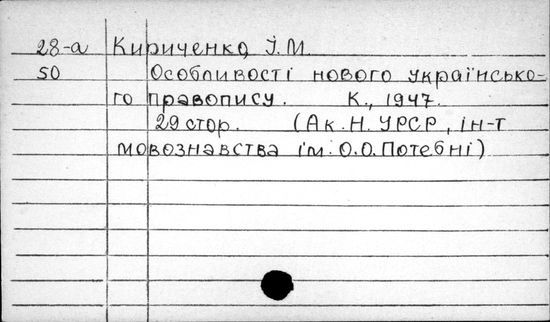 28-а Кириченко, І. М.
50 Особливості нового українсько-
го правопису. К., 1947.
29 стор. (Ак. Н. УРСР, ін-т
мовознавства ім. О.О. Потебні)